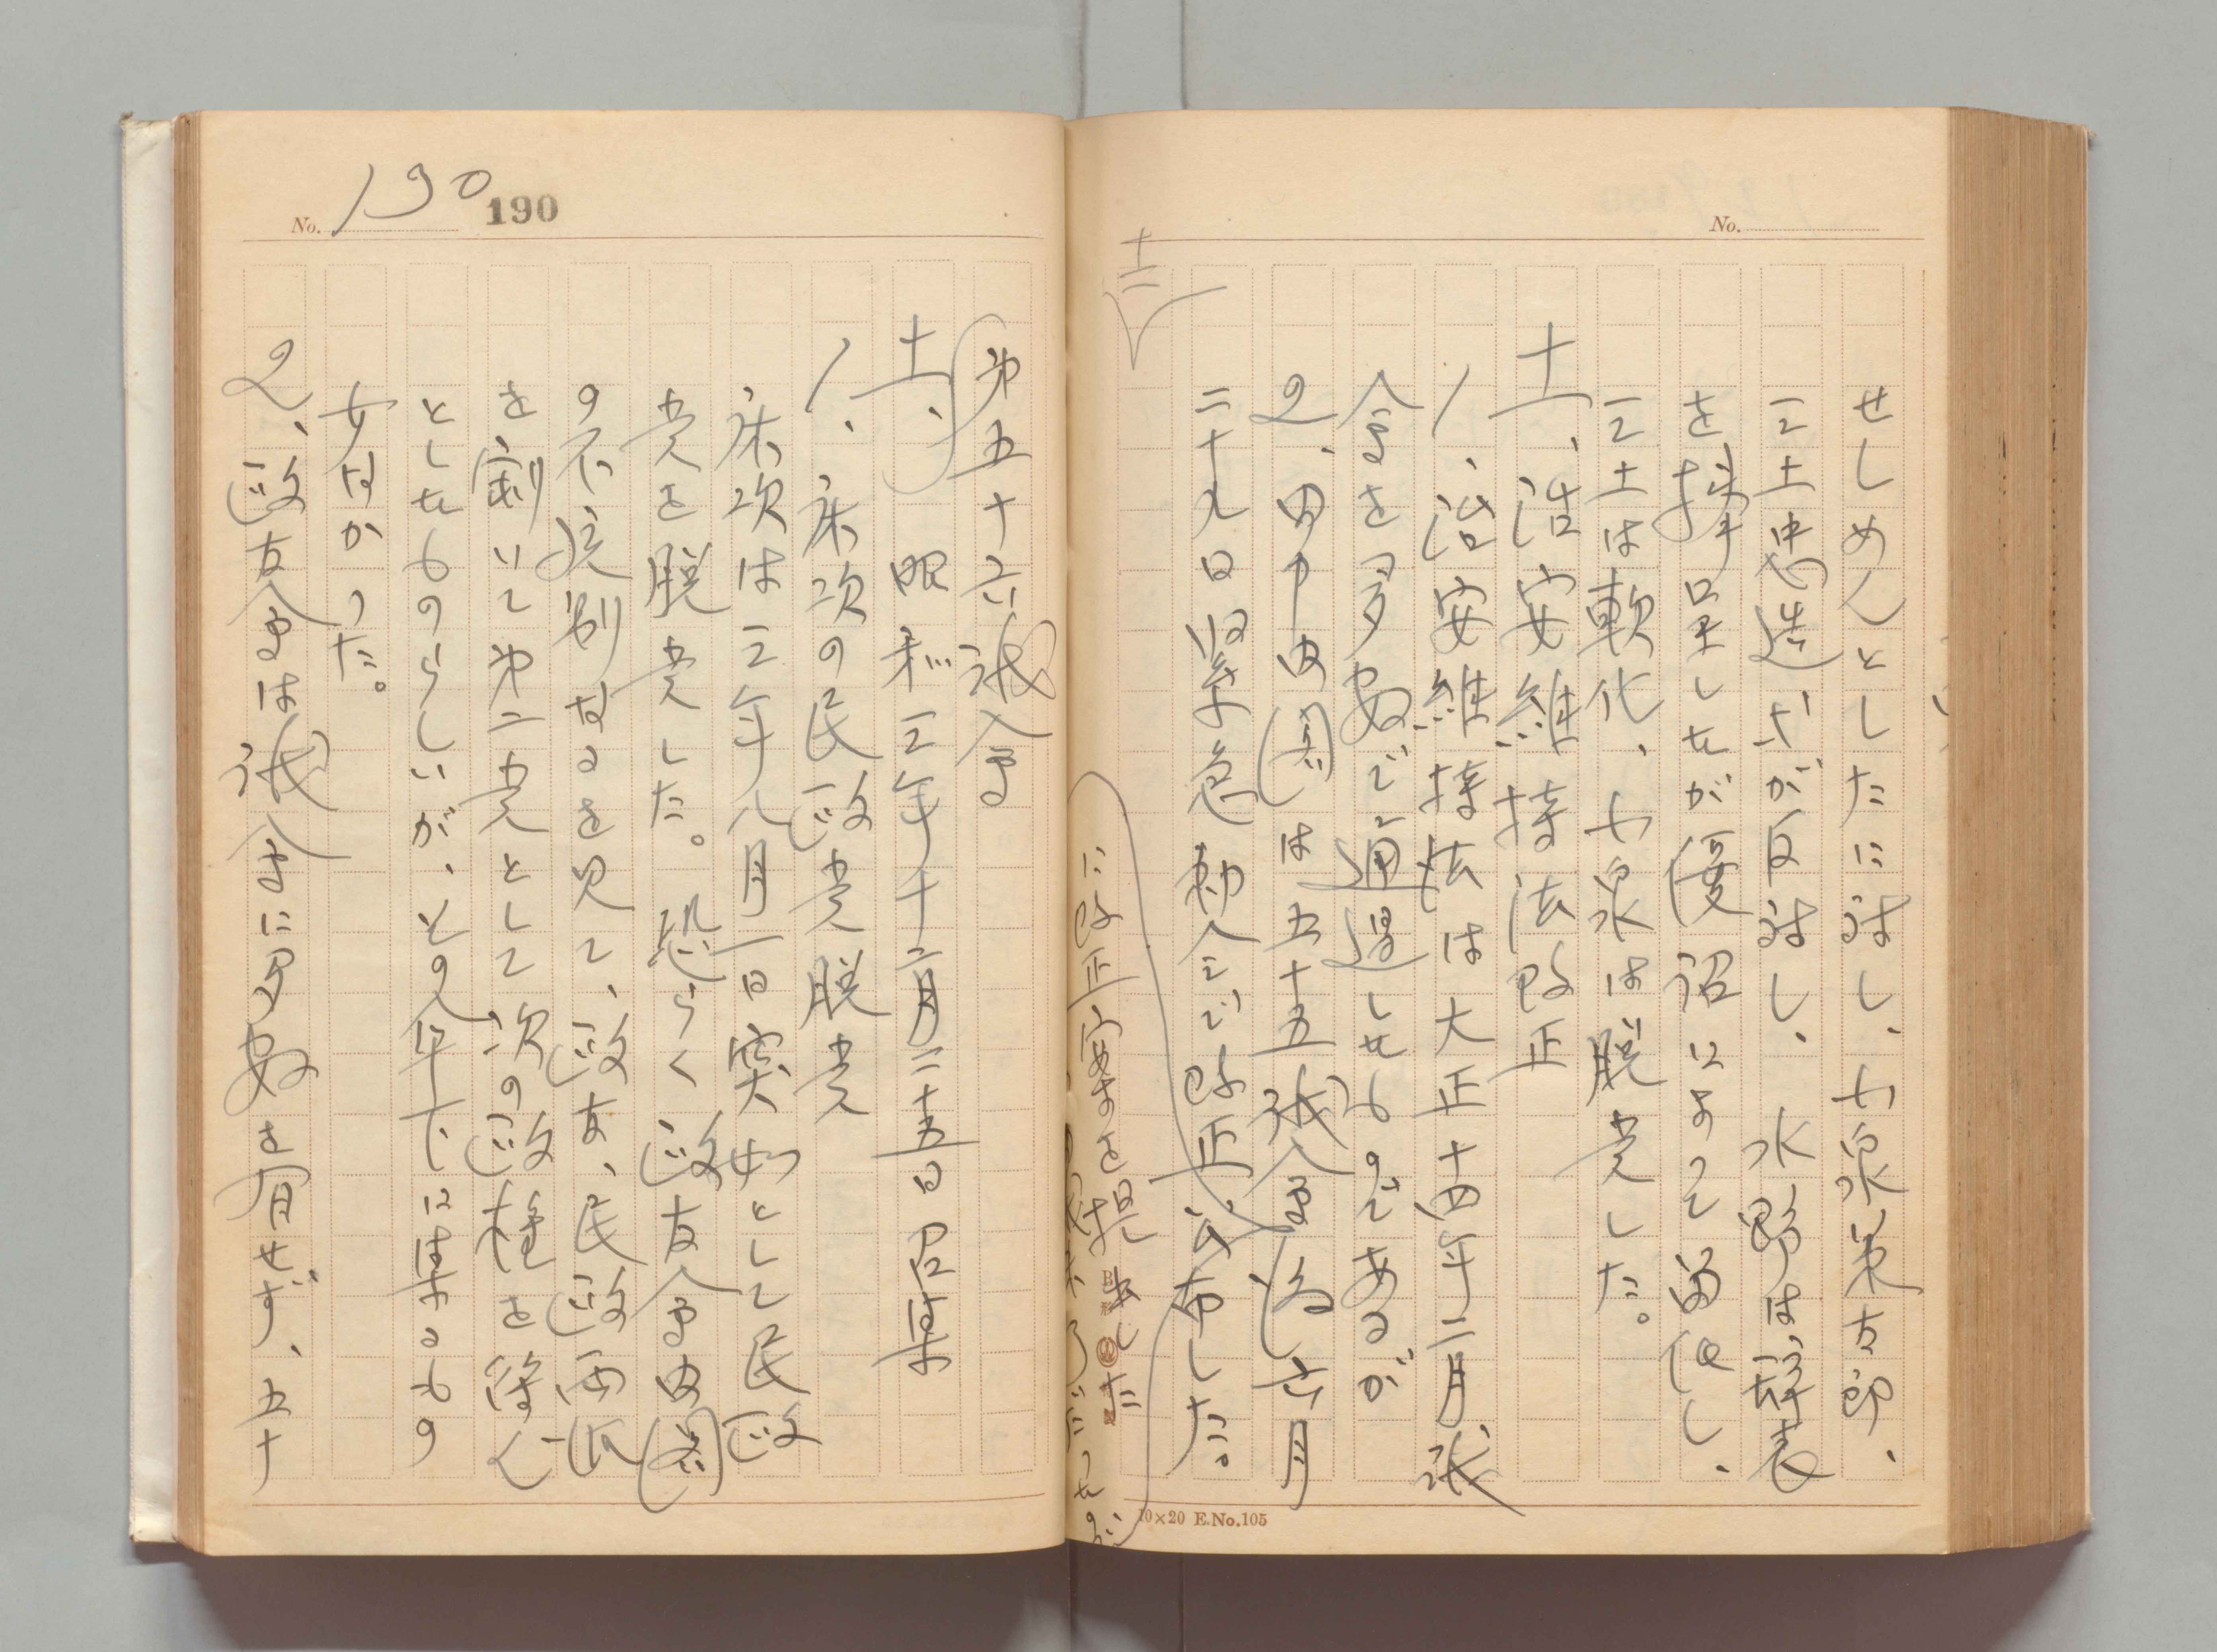 No.
せしめんとしたに対し、小泉策太郎、
三土忠造等が反対し、水野は辞表
を捧呈したが優詔によって留任し、
三土は軟化、小泉は脱党した。
十一、治安維持法改正
1、治安維持法は大正十四年二月議
会を多数で通過したものであるが
2、田中内閣は五十五議会後六月
二十九日緊急勅令で改正公布した。
に改正案を提出した
十二
10×20 E.No.105
No. 190 190
第五十六議会
十一、昭和三年十二月二十五日召集
1、床次の民政党脱党
床次は三年八月一日突如として民政
党を脱党した。恐らく政友会内閣
の不評判なるを見て、政友、民政両派
を割いて第二党として次の政権を得ん
としたものらしいが、その傘下に集るもの
少なかった。
2、政友会は議会に多数を有せず、五十